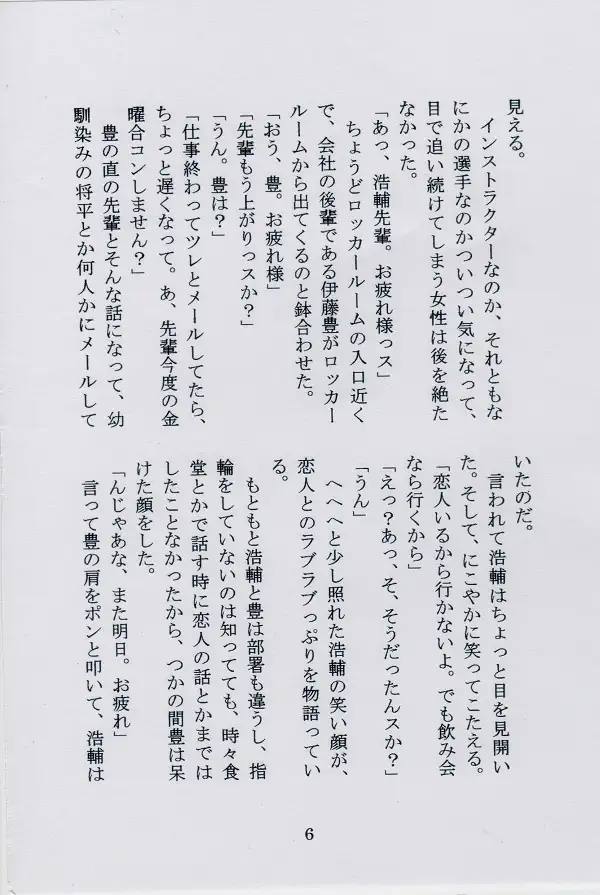 見える。
　インストラクターなのか、それともな
にかの選手なのかついつい気になって、
目で追い続けてしまう女性は後を絶た
なかった。
「あっ、浩輔先輩。お疲れ様っス」
　ちょうどロッカールームの入口近く
で、会社の後輩である伊藤豊がロッカー
ルームから出てくるのと鉢合わせた。
「おう、豊。お疲れ様」
「先輩もう上がりっスか？」
「うん。豊は？」
「仕事終わってツレとメールしてたら、
ちょっと遅くなって。あ、先輩今度の金
曜合コンしません？」
　豊の直の先輩とそんな話になって、幼
馴染みの将平とか何人かにメールして
いたのだ。
　言われて浩輔はちょっと目を見開い
た。そして、にこやかに笑ってこたえる。
「恋人いるから行かないよ。でも飲み会
なら行くから」
「えっ？あっ、そ、そうだったんスか？」
「うん」
　へへへと少し照れた浩輔の笑い顔が、
恋人とのラブラブっぷりを物語ってい
る。
　もともと浩輔と豊は部署も違うし、指
輪をしていないのは知ってても、時々食
堂とかで話す時に恋人の話とかまでは
したことなかったから、つかの間豊は呆
けた顔をした。
「んじゃあな、また明日。お疲れ」
　言って豊の肩をポンと叩いて、浩輔は
6